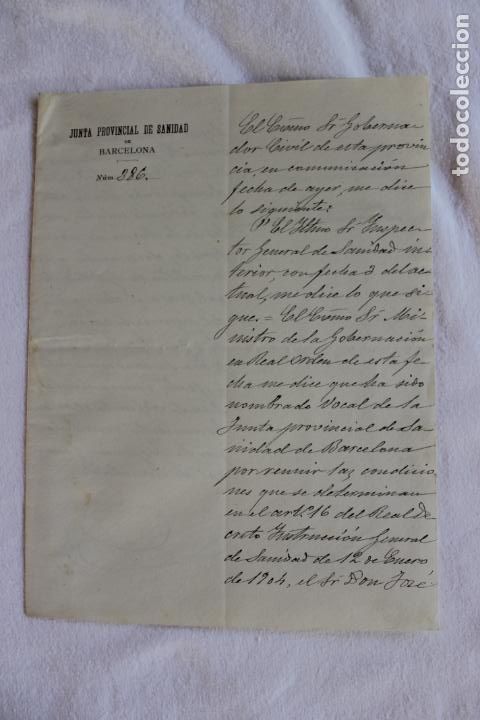 JUNTA PROVINCIAL DE SANIDAD
DE
BARCELONA
Núm. 286.
El Excmo Sr Goberna
dor Civil de esta provin
cia, en comunicación
fecha de ayer, me dice
lo siguiente:
"El Iltmo Sr Inspec
tor General de Sanidad in
terior, con fecha 3 del ac
tual, me dice lo que si
gue.= El Excmo Sr Mi
nistro de la Gobernación
en Real Orden de esta fe
cha me dice que ha sido
nombrado Vocal de la
Junta provincial de Sa
nidad de Barcelona
por reunir las condicio
nes que se determinan
en el artº 16 del Real De
creto Instrucción General
de Sanidad de 12 de Enero
de 1904, el Sr Don José
todocoleccion